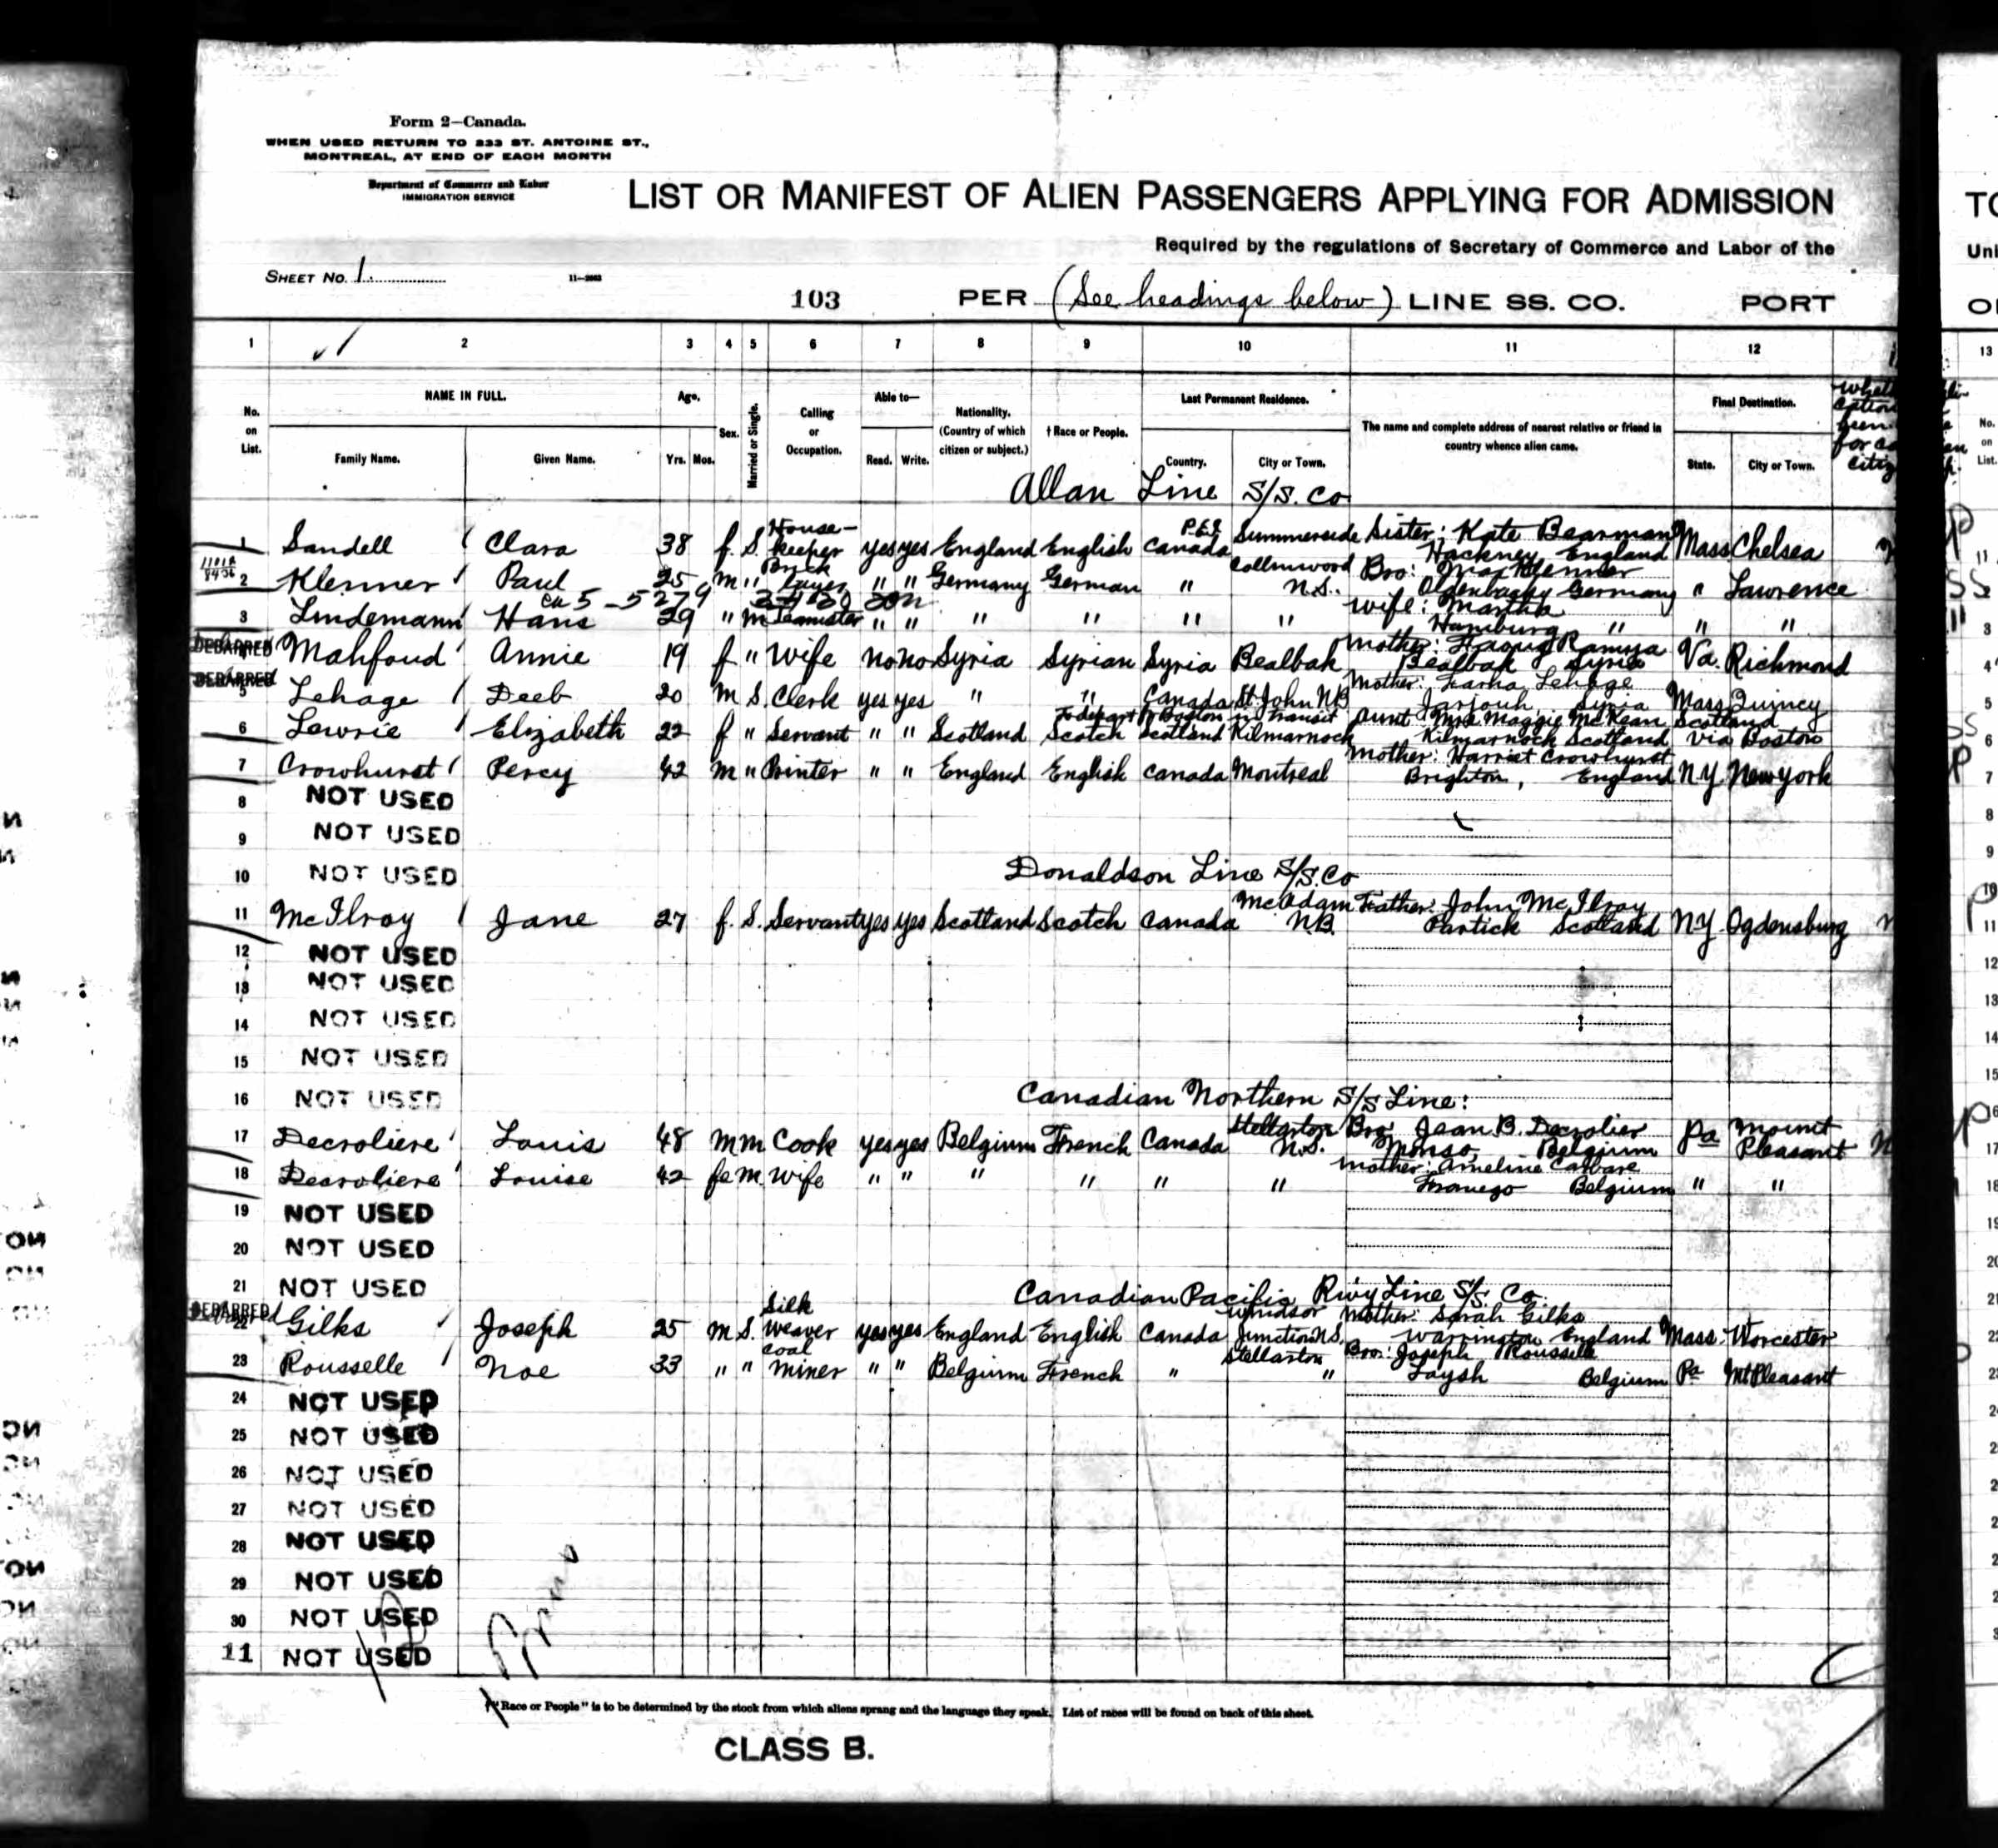 Form 2—Canada.
WHEN USED RETURN TO 233 ST. ANTOINE ST.,
MONTREAL, AT END OF EACH MONTH
Department of Commerce and Labor
IMMIGRATION SERVICE
LIST OR MANIFEST OF ALIEN PASSENGERS APPLYING FOR ADMISSION
Required by the regulations of Secretary of Commerce and Labor of the
SHEET No. 1.
103 PER (See headings below) LINE SS. CO. PORT
1 2 3 4 5 6 7 8 9 10 11 12 13
No. on List. NAME IN FULL. Age. Sex. Married or Single. Calling or Occupation. Able to— Nationality. (Country of which citizen or subject.) † Race or People. Last Permanent Residence. The name and complete address of nearest relative or friend in country whence alien came. Final Destination.
Family Name. Given Name. Yrs. Mos. Read. Write. Country. City or Town. State. City or Town.
Allan Line S/S. Co.
1 Sandell Clara 38 f. S. House-keeper yes yes England English P.E.I. Canada Summerside Sister: Kate Bearman Hackney England Mass Chelsea
2 Klenner Paul 25 m " Brick layer " " Germany German " Collinwood N.S. Bro: Germany " Lawrence
3 Lindemann Hans 29 " m Teamster " " " " " " Wife: Martha Hamburg " " "
DEBARRED 4 Mahfoud Annie 19 f " Wife no no Syria Syrian Syria Bealbak Mother: Ramza Bealbak Syria Va. Richmond
DEBARRED 5 Lehage Deeb 20 m S. Clerk yes yes " " Canada St. John NB Mother: Lehage Syria Mass Quincy
6 Lewrie Elizabeth 22 f " Servant " " Scotland Scotch Scotland Kilmarnock Aunt Mrs. Maggie McKean Kilmarnock Scotland Scotland via Boston
To depart fr Boston in transit
7 Crowhurst Percy 42 m " Printer " " England English Canada Montreal Mother: Harriet Crowhurst Brighton, England N.Y. New York
8 NOT USED
9 NOT USED
10 NOT USED
Donaldson Line S/S. Co
11 McIlroy Jane 27 f. S. Servant yes yes Scotland Scotch Canada McAdam N.B. Father: John McIlroy Partick Scotland N.Y. Ogdensburg
12 NOT USED
13 NOT USED
14 NOT USED
15 NOT USED
16 NOT USED
Canadian Northern S/S Line:
17 Decroliere Louis 48 m m Cook yes yes Belgium French Canada Stellarton N.S. Bro Jean B. Decrolier Belgium Pa Mount Pleasant
18 Decroliere Louise 42 fe m. Wife " " " " " " Mother: Ameline Belgium " "
19 NOT USED
20 NOT USED
21 NOT USED
Canadian Pacific Rwy Line S/S Co.
DEBARRED 22 Gilks Joseph 25 m S. Silk weaver yes yes England English Canada Windsor Junction N.S. Mother: Sarah Gilks Warrington England Mass. Worcester
23 Rousselle Noe 33 " " Coal miner " " Belgium French " Stellarton " Bro: Joseph Rousselle Belgium Pa Mt Pleasant
24 NOT USED
25 NOT USED
26 NOT USED
27 NOT USED
28 NOT USED
29 NOT USED
30 NOT USED
11 NOT USED
† "Race or People" is to be determined by the stock from which aliens sprang and the language they speak. List of races will be found on back of this sheet.
CLASS B.